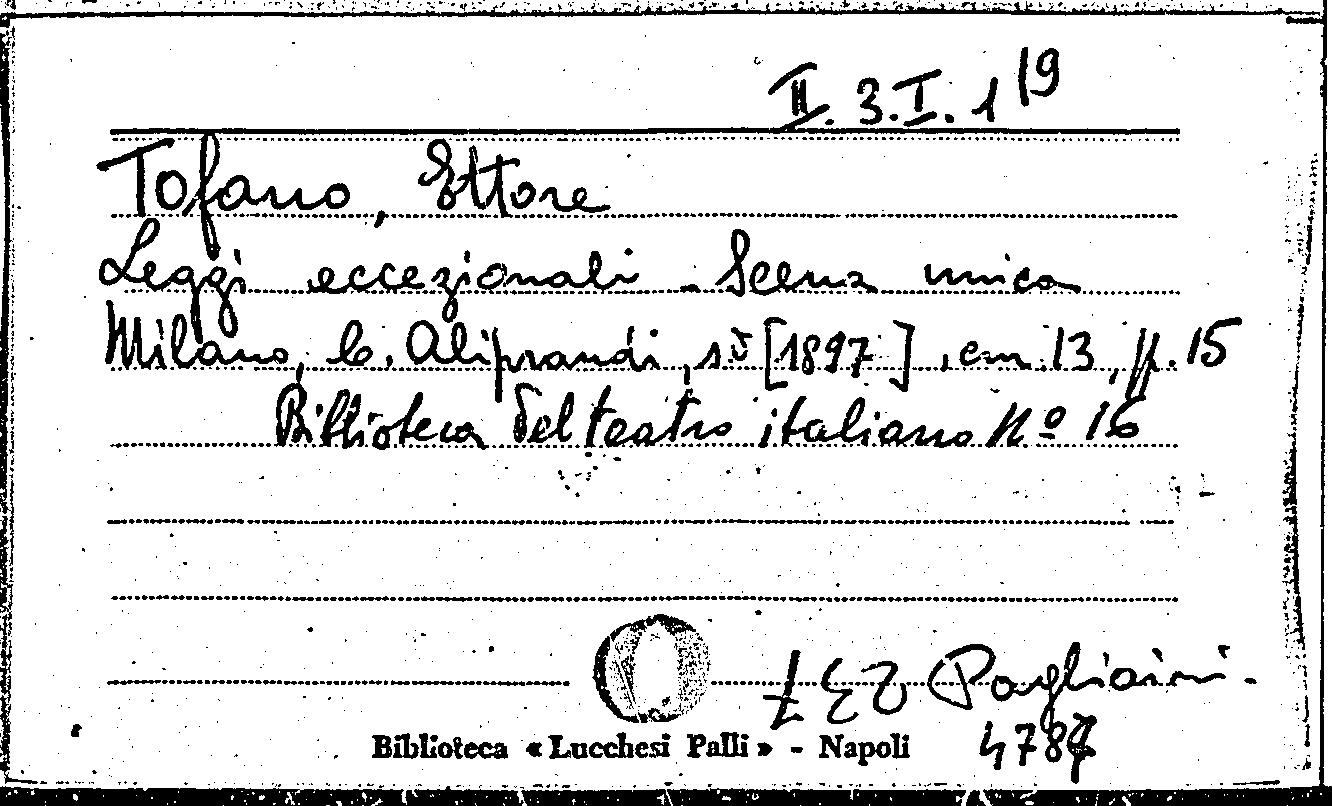 II. 3. I. 1 19
Tofano, Ettore
Leggi eccezionali - Scena unica
Milano, C. Aliprandi, s.d. [1897], cm. 13, pp. 15
Biblioteca del teatro italiano Nº 16
Pagliaini.
Biblioteca « Lucchesi Palli » - Napoli